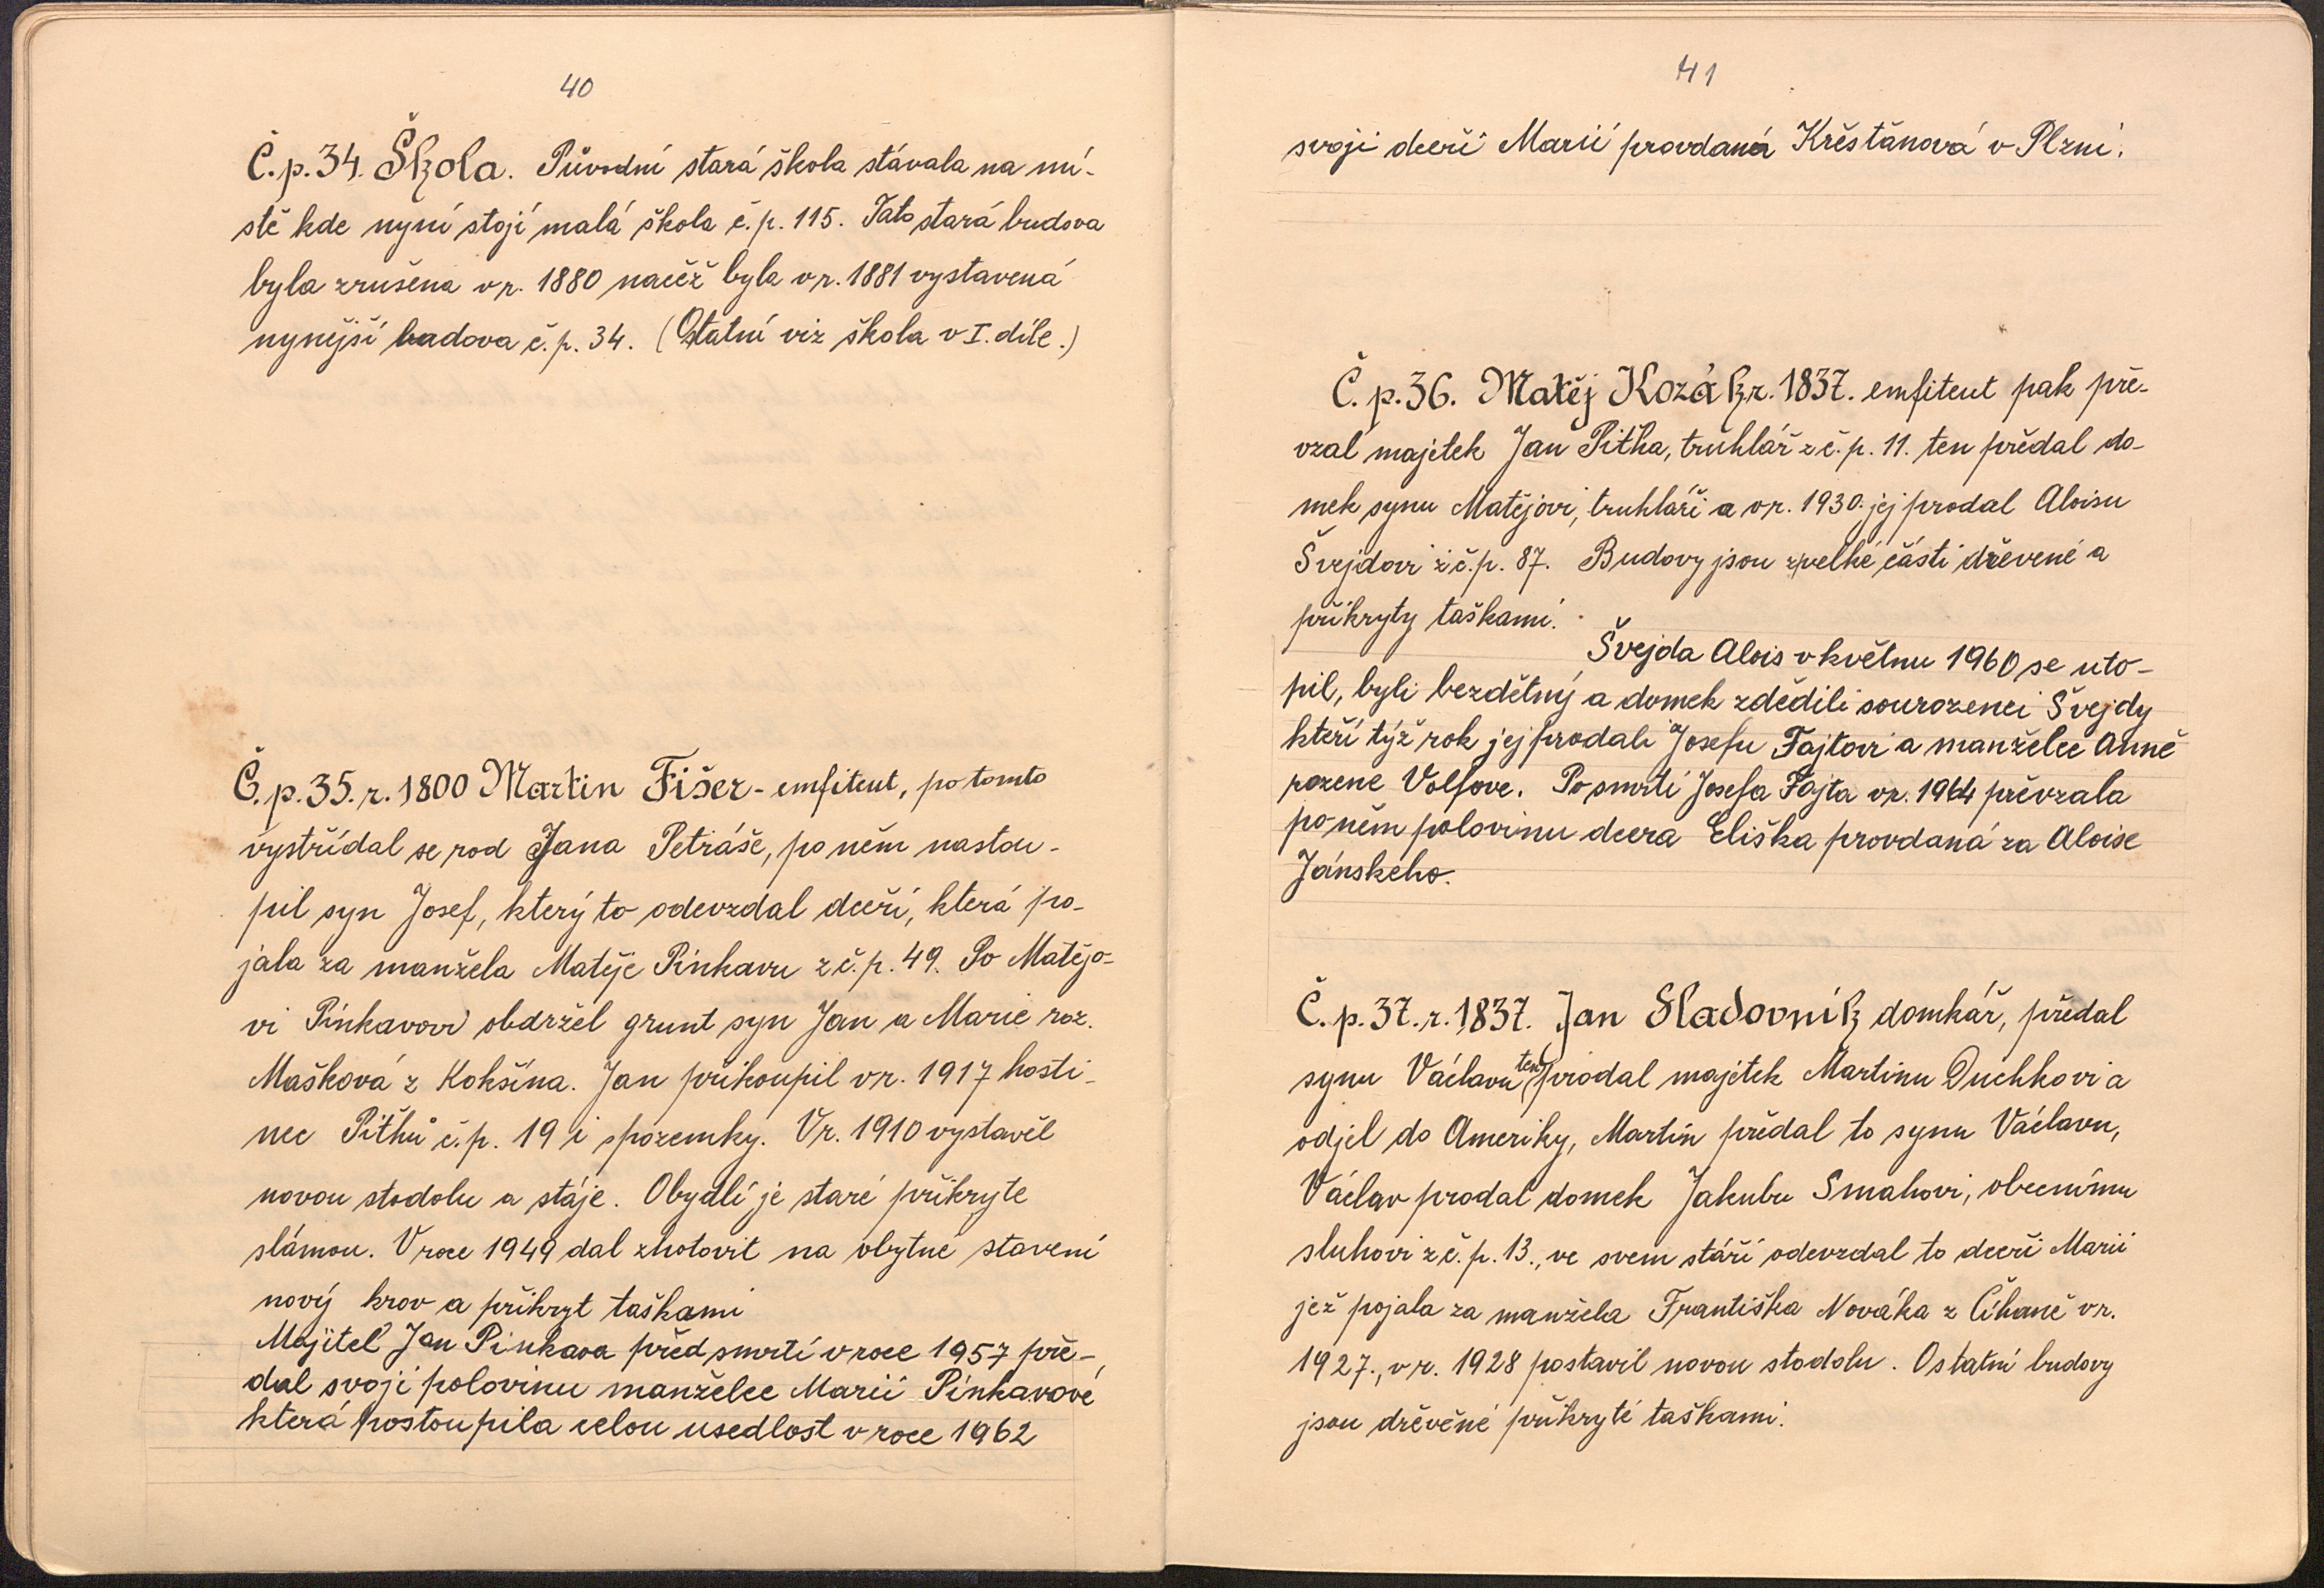 40
Č.p.34. Škola. Původní stará škola stávala na mí-
stě kde nyní stojí malá škola č.p. 115. Tato stará budova
byla zrušena v r. 1880 načež byla v r. 1881 vystavená
nynější budova č.p. 34. (Ostatní viz škola v I. díle.)
Č.p.35. r. 1800 Martin Fišer - emfiteut, po tomto
vystřídal se rod Jana Petráše, po něm nastou-
pil syn Josef, který to odevzdal dceři, která po-
jala za manžela Matěje Pinkavu z č.p. 49. Po Matějo-
vi Pinkavovi obdržel grunt syn Jan a Marie roz.
Mašková z Kokšína. Jan přikoupil v r. 1917 hosti-
nec Pithů č.p. 19 i s pozemky. V r. 1910 vystavěl
novou stodolu a stáje. Obydlí je staré přikryte
slámou. V roce 1949 dal zhotovit na obytné stavení
nový krov a přikryt taškami
Majitel Jan Pinkava před smrtí v roce 1957 pře-
dal svoji polovinu manželce Marii Pinkavové
která postoupila celou usedlost v roce 1962
41
svoji dceři Marii provdaná Křesťanová v Plzni.
Č.p.36. Matěj Kozák r. 1837. emfiteut pak pře-
vzal majetek Jan Pitha, truhlář z č.p. 11. ten předal do-
mek synu Matějovi, truhláři a v r. 1930. jej prodal Aloisu
Švejdovi z č.p. 87. Budovy jsou z velké části dřevené a
přikryty taškami.
Švejda Alois v květnu 1960 se uto-
pil, byli bezdětný a domek zdědili sourozenci Švejdy
kteří týž rok jej prodali Josefu Fajtovi a manželce Anně
rozene Volfove. Po smrti Josefa Fajta v r. 1964 převzala
po něm polovinu dcera Eliška provdaná za Aloise
Jánského.
Č.p.37. r. 1837. Jan Sladovník domkář, předal
synu Václavu ten prodal majetek Martinu Duchkovi a
odjel do Ameriky, Martin předal to synu Václavu,
Václav prodal domek Jakubu Smahovi, obecnímu
sluhovi z č.p. 13., ve svem stáří odevzdal to dceři Marii
jež pojala za manžela Františka Nováka z Číhaně v r.
1927., v r. 1928 postavil novou stodolu. Ostatní budovy
jsou dřevěné přikryté taškami.